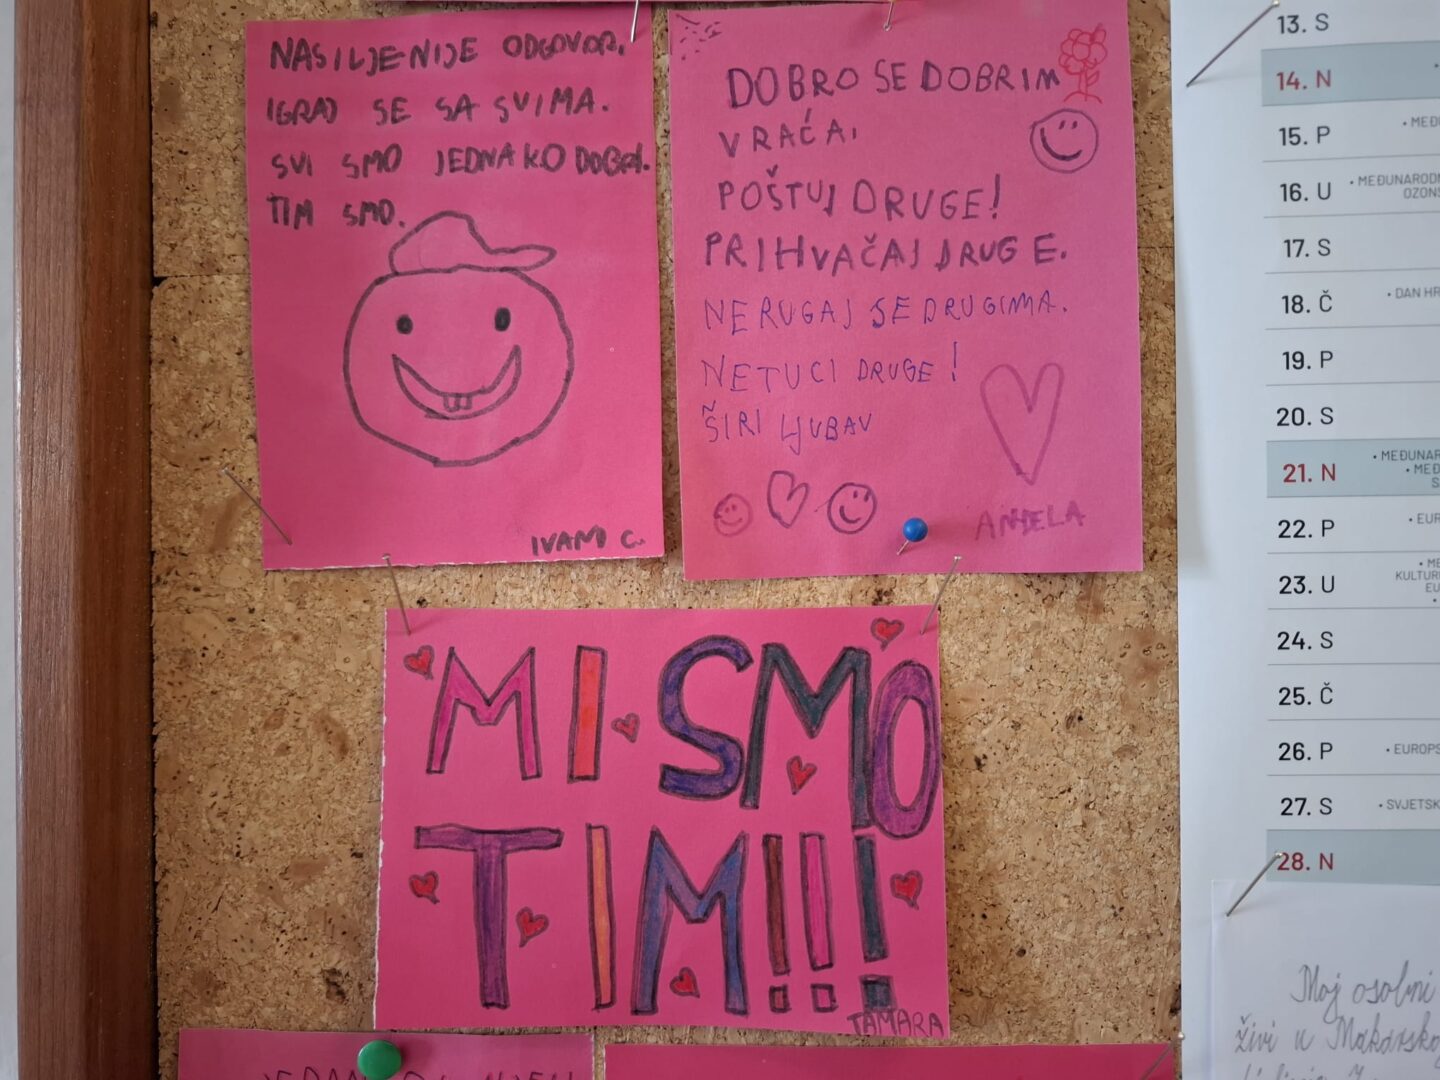 NASILJE NIJE ODGOVOR.
IGRAJ SE SA SVIMA.
SVI SMO JEDNAKO DOBRI.
TIM SMO.
IVANO C.
DOBRO SE DOBRIM
VRAĆA.
POŠTUJ DRUGE!
PRIHVAČAJ DRUGE.
NE RUGAJ SE DRUGIMA.
NE TUCI DRUGE!
ŠIRI LJUBAV
ANĐELA
MI SMO
TIM!!!
TAMARA
13. S
14. N
15. P
16. U
• MEĐUNAROD
OZONS
17. S
18. Č
• DAN HR
19. P
20. S
21. N
• MEĐUNAR
• MEĐ
22. P
• EUR
23. U
• ME
KULTUR
EU
24. S
25. Č
26. P
• EUROPS
27. S
• SVJETSK
28. N
Moj osobni
živi u Makarsko